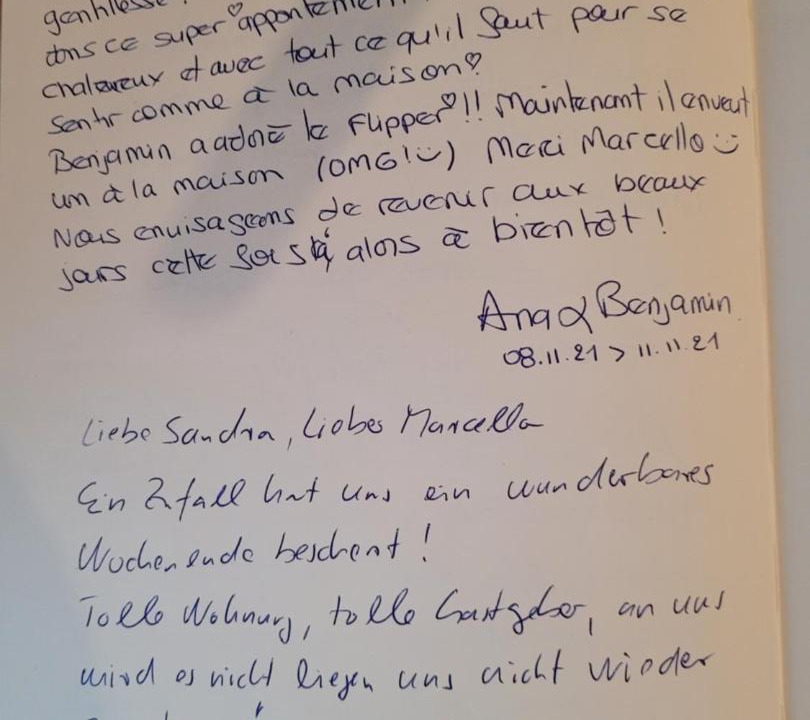 gentillesse
dans ce super♡ appartement
chaleureux et avec tout ce qu'il faut pour se
sentir comme à la maison♡
Benjamin a adoré le Flipper♡!! Maintenant il en veut
un à la maison (OMG!☺) Merci Marcello☺
Nous envisageons de revenir aux beaux
jours cette fois là, alors à bientôt !
Ana & Benjamin
08.11.21 > 11.11.21
Liebe Sandra, Liebes Marcello
Ein Zufall hat uns ein wunderbares
Wochenende beschert!
Tolle Wohnung, tolle Gastgeber, an uns
wird es nicht liegen uns nicht wieder